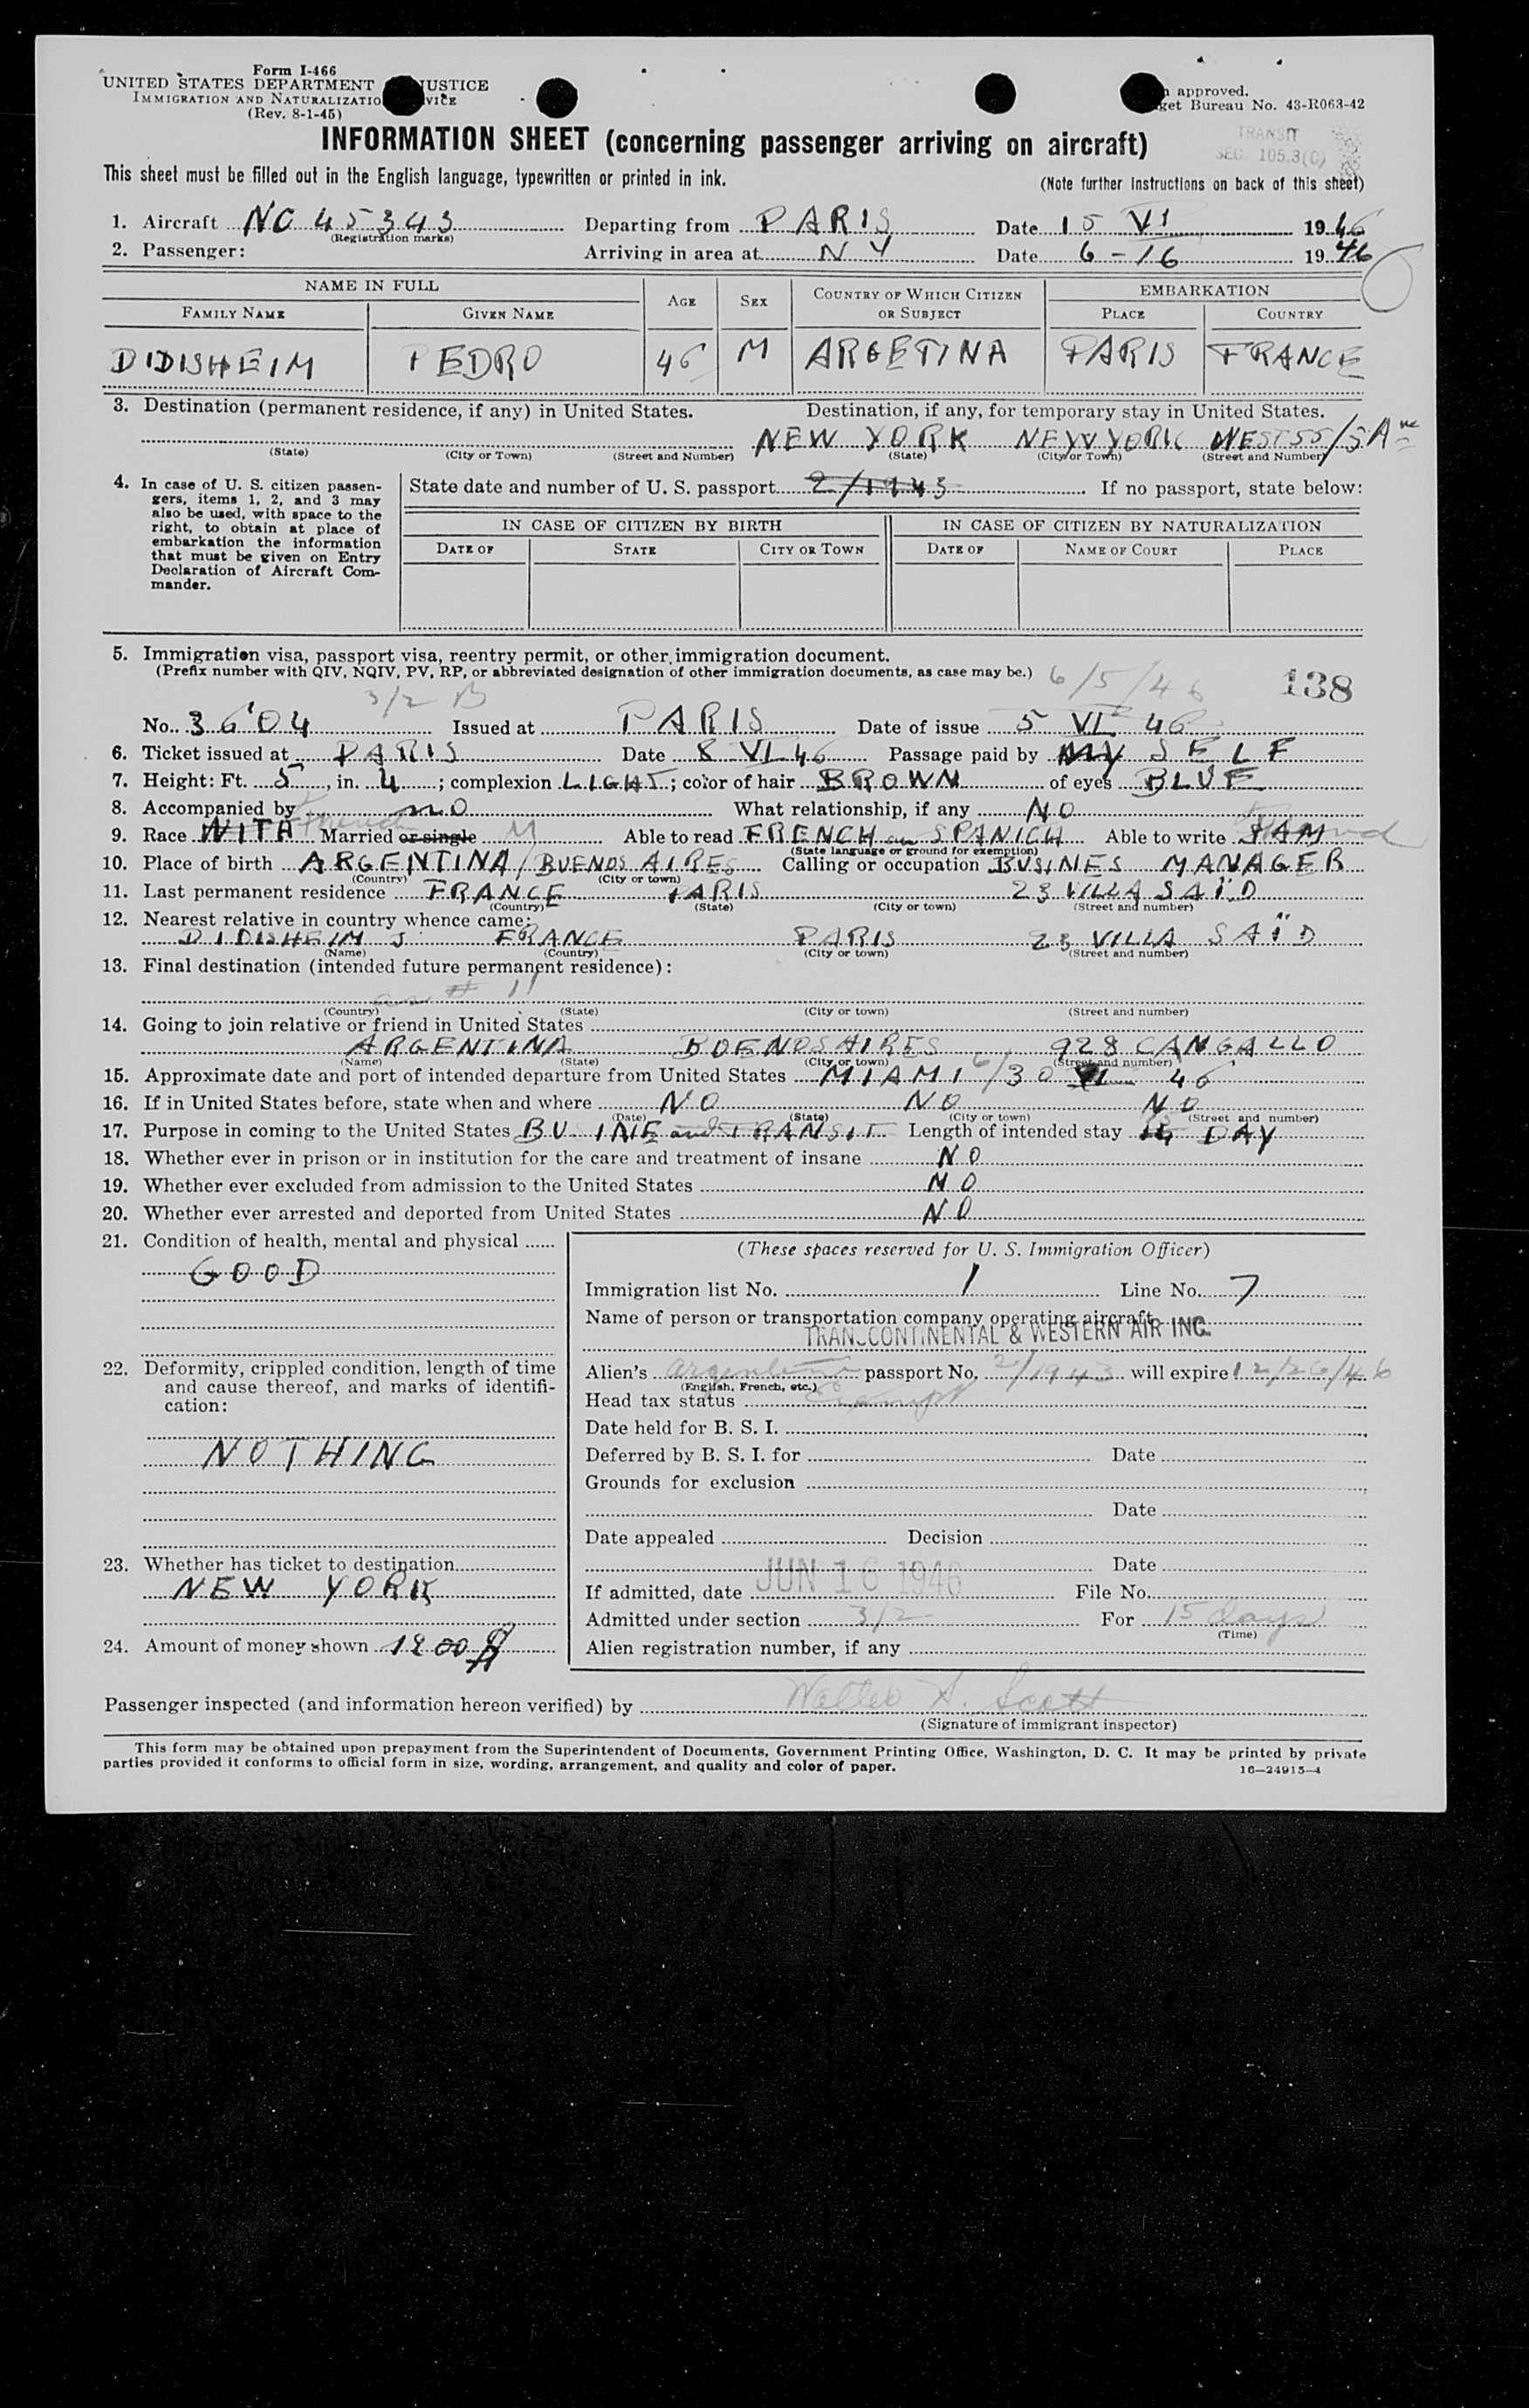 Form I-466
UNITED STATES DEPARTMENT JUSTICE
IMMIGRATION AND NATURALIZATIO VICE
(Rev. 8-1-45)
approved.
get Bureau No. 43-R063-42
TRANSIT
SEC. 105.3(C)
INFORMATION SHEET (concerning passenger arriving on aircraft)
This sheet must be filled out in the English language, typewritten or printed in ink. (Note further instructions on back of this sheet)
1. Aircraft NC 45343 Departing from PARIS Date 15 VI 1946
(Registration marks)
2. Passenger: Arriving in area at NY Date 6-16 1946
NAME IN FULL AGE SEX COUNTRY OF WHICH CITIZEN OR SUBJECT EMBARKATION
FAMILY NAME GIVEN NAME PLACE COUNTRY
DIDISHEIM PEDRO 46 M ARGETINA PARIS FRANCE
3. Destination (permanent residence, if any) in United States. Destination, if any, for temporary stay in United States.
NEW YORK NEW YORK WEST 55/5 Ave
(State) (City or Town) (Street and Number) (State) (City or Town) (Street and Number)
4. In case of U. S. citizen passengers, items 1, 2, and 3 may also be used, with space to the right, to obtain at place of embarkation the information that must be given on Entry Declaration of Aircraft Commander.
State date and number of U. S. passport 2/1943 If no passport, state below:
IN CASE OF CITIZEN BY BIRTH IN CASE OF CITIZEN BY NATURALIZATION
DATE OF STATE CITY OR TOWN DATE OF NAME OF COURT PLACE
5. Immigration visa, passport visa, reentry permit, or other immigration document.
(Prefix number with QIV, NQIV, PV, RP, or abbreviated designation of other immigration documents, as case may be.) 6/5/46 138
3/2 B
No. 3604 Issued at PARIS Date of issue 5 VI 46
6. Ticket issued at PARIS Date 8 VI 46 Passage paid by MY SELF
7. Height: Ft. 5, in. 4; complexion LIGHT; color of hair BROWN of eyes BLUE
8. Accompanied by no What relationship, if any NO
9. Race WITH French Married or single M Able to read FRENCH SPANICH Able to write
(State language or ground for exemption)
10. Place of birth ARGENTINA/BUENOS AIRES Calling or occupation BUSINES MANAGER
(Country) (City or town)
11. Last permanent residence FRANCE PARIS 23 VILLA SAÏD
(Country) (State) (City or town) (Street and number)
12. Nearest relative in country whence came:
DIDISHEIM J FRANCE PARIS 23 VILLA SAÏD
(Name) (Country) (City or town) (Street and number)
13. Final destination (intended future permanent residence):
as # 11
(Country) (State) (City or town) (Street and number)
14. Going to join relative or friend in United States
ARGENTINA BUENOS AIRES 928 CANGALLO
(Name) (State) (City or town) (Street and number)
15. Approximate date and port of intended departure from United States MIAMI 6/30 VI 46
16. If in United States before, state when and where NO NO NO
(Date) (State) (City or town) (Street and number)
17. Purpose in coming to the United States BU INE and TRANSIT Length of intended stay 15 DAY
18. Whether ever in prison or in institution for the care and treatment of insane NO
19. Whether ever excluded from admission to the United States NO
20. Whether ever arrested and deported from United States NO
21. Condition of health, mental and physical
GOOD
22. Deformity, crippled condition, length of time and cause thereof, and marks of identification:
NOTHING
23. Whether has ticket to destination
NEW YORK
24. Amount of money shown 1200 $
(These spaces reserved for U. S. Immigration Officer)
Immigration list No. 1 Line No. 7
Name of person or transportation company operating aircraft
TRANSCONTINENTAL & WESTERN AIR INC.
Alien's argentine passport No. 2/1943 will expire 12/26/46
(English, French, etc.)
Head tax status Exempt
Date held for B. S. I.
Deferred by B. S. I. for Date
Grounds for exclusion
Date
Date appealed Decision
Date
If admitted, date JUN 16 1946 File No.
Admitted under section 3/2 For 15 days
(Time)
Alien registration number, if any
Passenger inspected (and information hereon verified) by Walter A. Scott
(Signature of immigrant inspector)
This form may be obtained upon prepayment from the Superintendent of Documents, Government Printing Office, Washington, D. C. It may be printed by private
parties provided it conforms to official form in size, wording, arrangement, and quality and color of paper. 16—24915-4